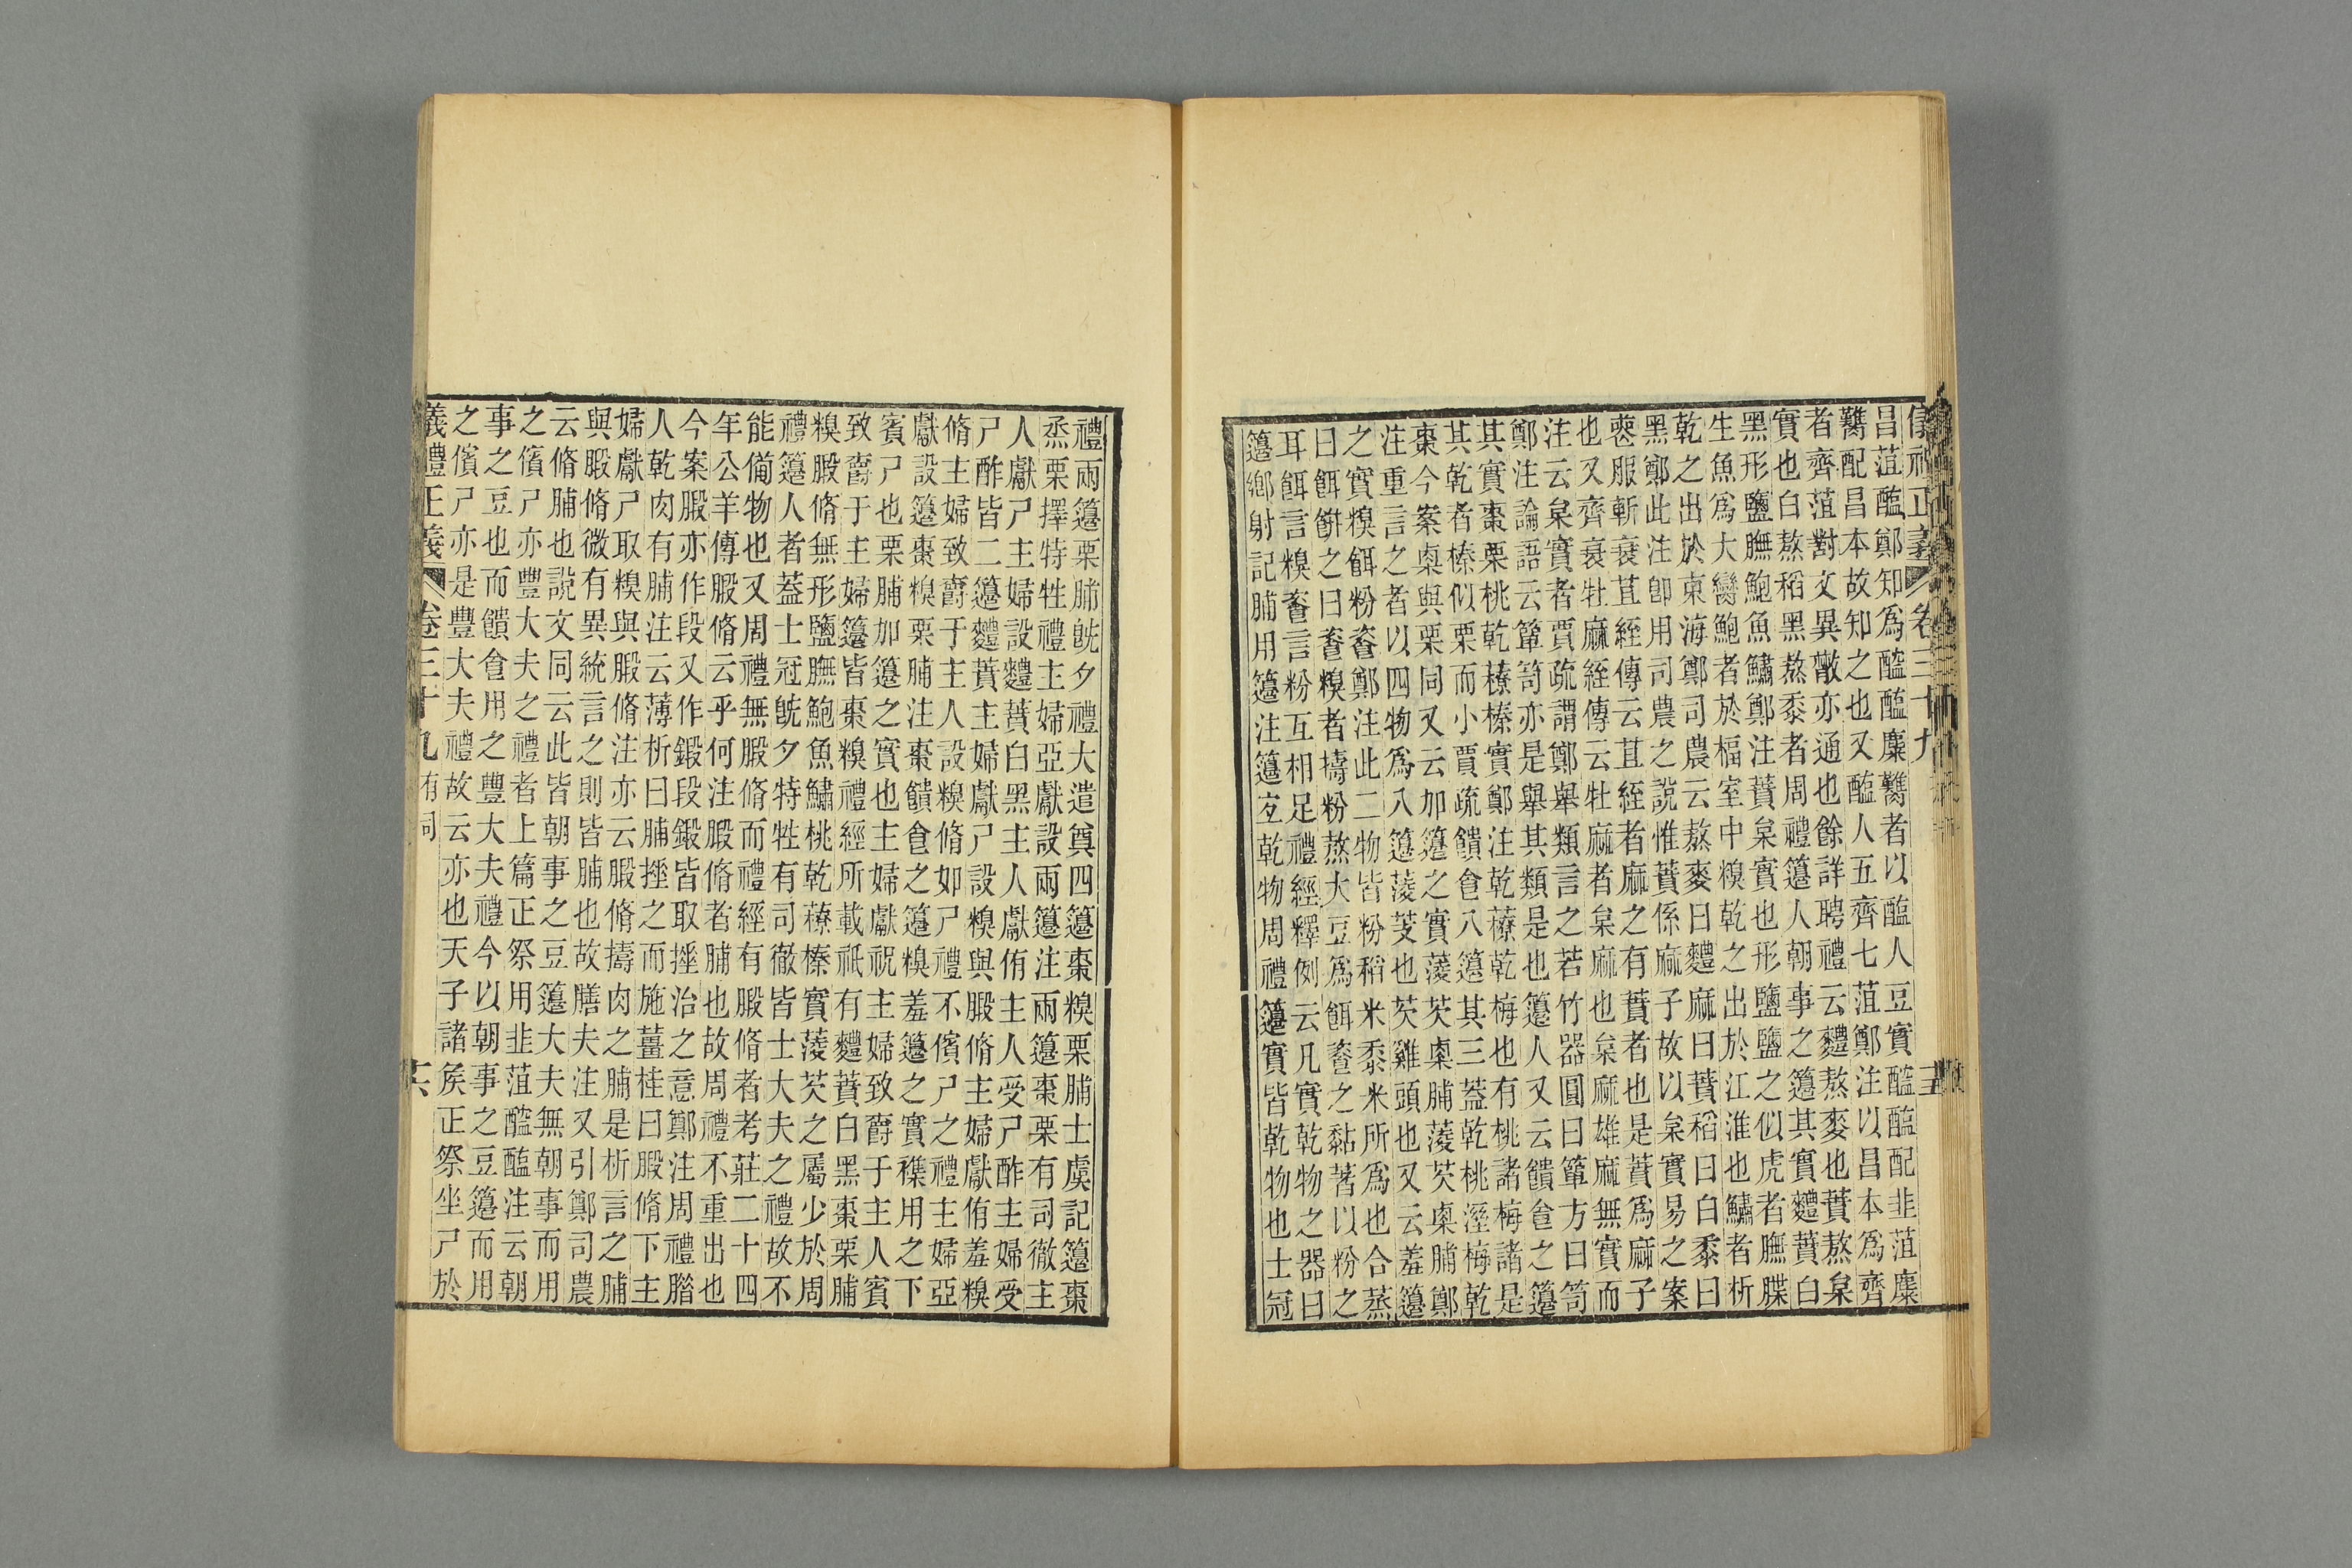 儀禮正義 卷三十九
昌菹醢鄭知爲醢醢麋臡者以醢人豆實醢醢配韭菹麋
臡配昌本故知之也又醢人五齊七菹鄭注以昌本爲齊
者齊菹對文異散亦通也餘詳聘禮云麷熬麥也蕡熬枲
實也白熬稻黑熬黍者周禮籩人朝事之籩其實麷蕡白
黑形鹽膴鮑魚鱐鄭注蕡枲實也形鹽鹽之似虎者膴牒
生魚爲大臠鮑者於楅室中糗乾之出於江淮也鱐者析
乾之出於東海鄭司農云熬麥曰麷麻曰蕡稻曰白黍曰
黑鄭此注卽用司農之說惟蕡係麻子故以枲實易之案
喪服斬衰苴絰傳云苴絰者麻之有蕡者也是蕡爲麻子
也又齊衰牡麻絰傳云牡麻者枲麻也枲麻雄麻無實而
注云枲實者賈疏謂鄭舉類言之若竹器圓曰簞方曰笥
鄭注論語云簞笥亦是舉其類是也籩人又云饋食之籩
其實棗栗桃乾䕩榛實鄭注乾䕩乾梅也有桃諸梅諸是
其乾者榛似栗而小賈疏饋食八籩其三蓋乾桃溼梅乾
棗今案㮚與栗同又云加籩之實蔆芡㮚脯蔆芡㮚脯鄭
注重言之者以四物爲八籩蔆芰也芡雞頭也又云羞籩
之實糗餌粉餈鄭注此二物皆粉稻米黍米所爲也合蒸
曰餌餅之曰餈糗者擣粉熬大豆爲餌餈之黏著以粉之
耳餌言糗餈言粉互相足禮經釋例云凡實乾物之器曰
籩鄉射記脯用籩注籩宐乾物周禮籩實皆乾物也士冠
禮兩籩栗脯旣夕禮大遣奠四籩棗糗栗脯士虞記籩棗
烝栗擇特牲禮主婦亞獻設兩籩注兩籩棗栗有司徹主
人獻尸主婦設麷蕡白黑主人獻侑主人受尸酢主婦受
尸酢皆二籩麷蕡主婦獻尸設糗與腶脩主婦獻侑羞糗
脩主婦致爵于主人設糗脩如尸禮不儐尸之禮主婦亞
獻設籩棗糗栗脯注棗饋食之籩糗羞籩之實襍用之下
賓尸也栗脯加籩之實也主婦獻祝主婦致爵于主人賓
致爵于主婦籩皆棗糗禮經所載祇有麷蕡白黑棗栗脯
糗腶脩無形鹽膴鮑魚鱐桃乾䕩榛實蔆芡之屬少於周
禮籩人者蓋士冠旣夕特牲有司徹皆士大夫之禮故不
能備物也又周禮無腶脩而禮經有腶脩者考莊二十四
年公羊傳腶脩云乎何注腶脩者脯也故周禮不重出也
今案腶亦作段又作鍛段鍛皆取捶治之意鄭注周禮腊
人乾肉有脯注云薄析曰脯捶之而施薑桂曰腶脩下主
婦獻尸取糗與腶脩注亦云腶脩擣肉之脯是析言之脯
與腶脩微有異統言之則皆脯也故膳夫注又引鄭司農
云脩脯也說文同云此皆朝事之豆籩大夫無朝事而用
之儐尸亦豐大夫之禮者上篇正祭用韭菹醓醢注云朝
事之豆也而饋食用之豐大夫禮今以朝事之豆籩而用
之儐尸亦是豐大夫禮故云亦也天子諸矦正祭坐尸於
義禮正義 卷三十九 有司 六